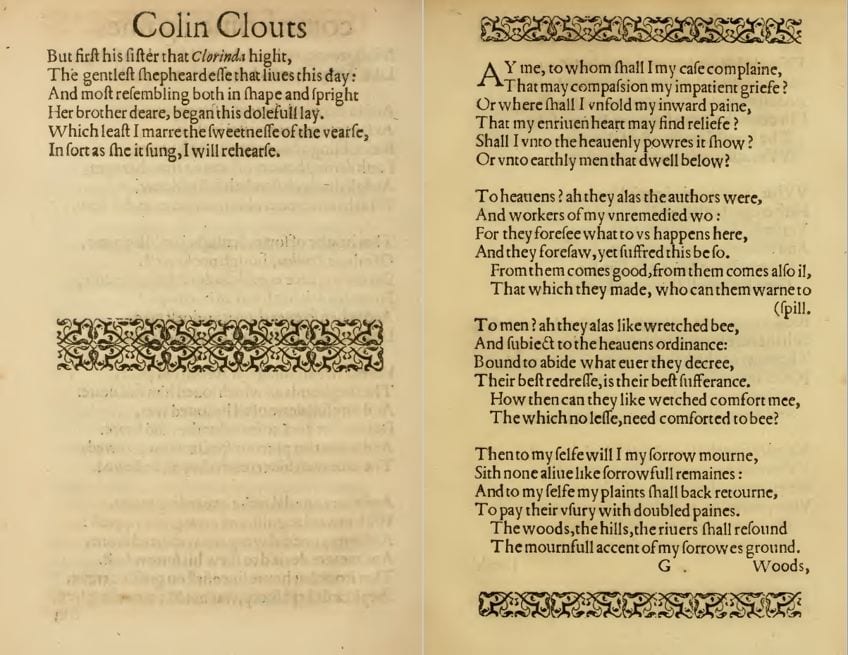 Colin Clouts
But firſt his ſiſter that Clorinda hight,
The gentleſt ſhepheardeſſe that liues this day:
And moſt reſembling both in ſhape and ſpright
Her brother deare, began this dolefull lay.
Which leaſt I marre the ſweetneſſe of the vearſe,
In ſort as ſhe it ſung, I will rehearſe.
AY me, to whom ſhall I my caſe complaine,
That may compaſsion my impatient griefe?
Or where ſhall I vnfold my inward paine,
That my enriuen heart may find reliefe?
Shall I vnto the heauenly powres it ſhow?
Or vnto earthly men that dwell below?
To heauens? ah they alas the authors were,
And workers of my vnremedied wo:
For they foreſee what to vs happens here,
And they foreſaw, yet ſuffred this be ſo.
From them comes good, from them comes alſo il,
That which they made, who can them warne to
(ſpill.
To men? ah they alas like wretched bee,
And ſubiect to the heauens ordinance:
Bound to abide what euer they decree,
Their beſt redreſſe, is their beſt ſufferance.
How then can they like wetched comfort mee,
The which no leſſe, need comforted to bee?
Then to my ſelfe will I my ſorrow mourne,
Sith none aliue like ſorrowfull remaines:
And to my ſelfe my plaints ſhall back retourne,
To pay their vſury with doubled paines.
The woods, the hills, the riuers ſhall reſound
The mournfull accent of my ſorrowes ground.
G . Woods,